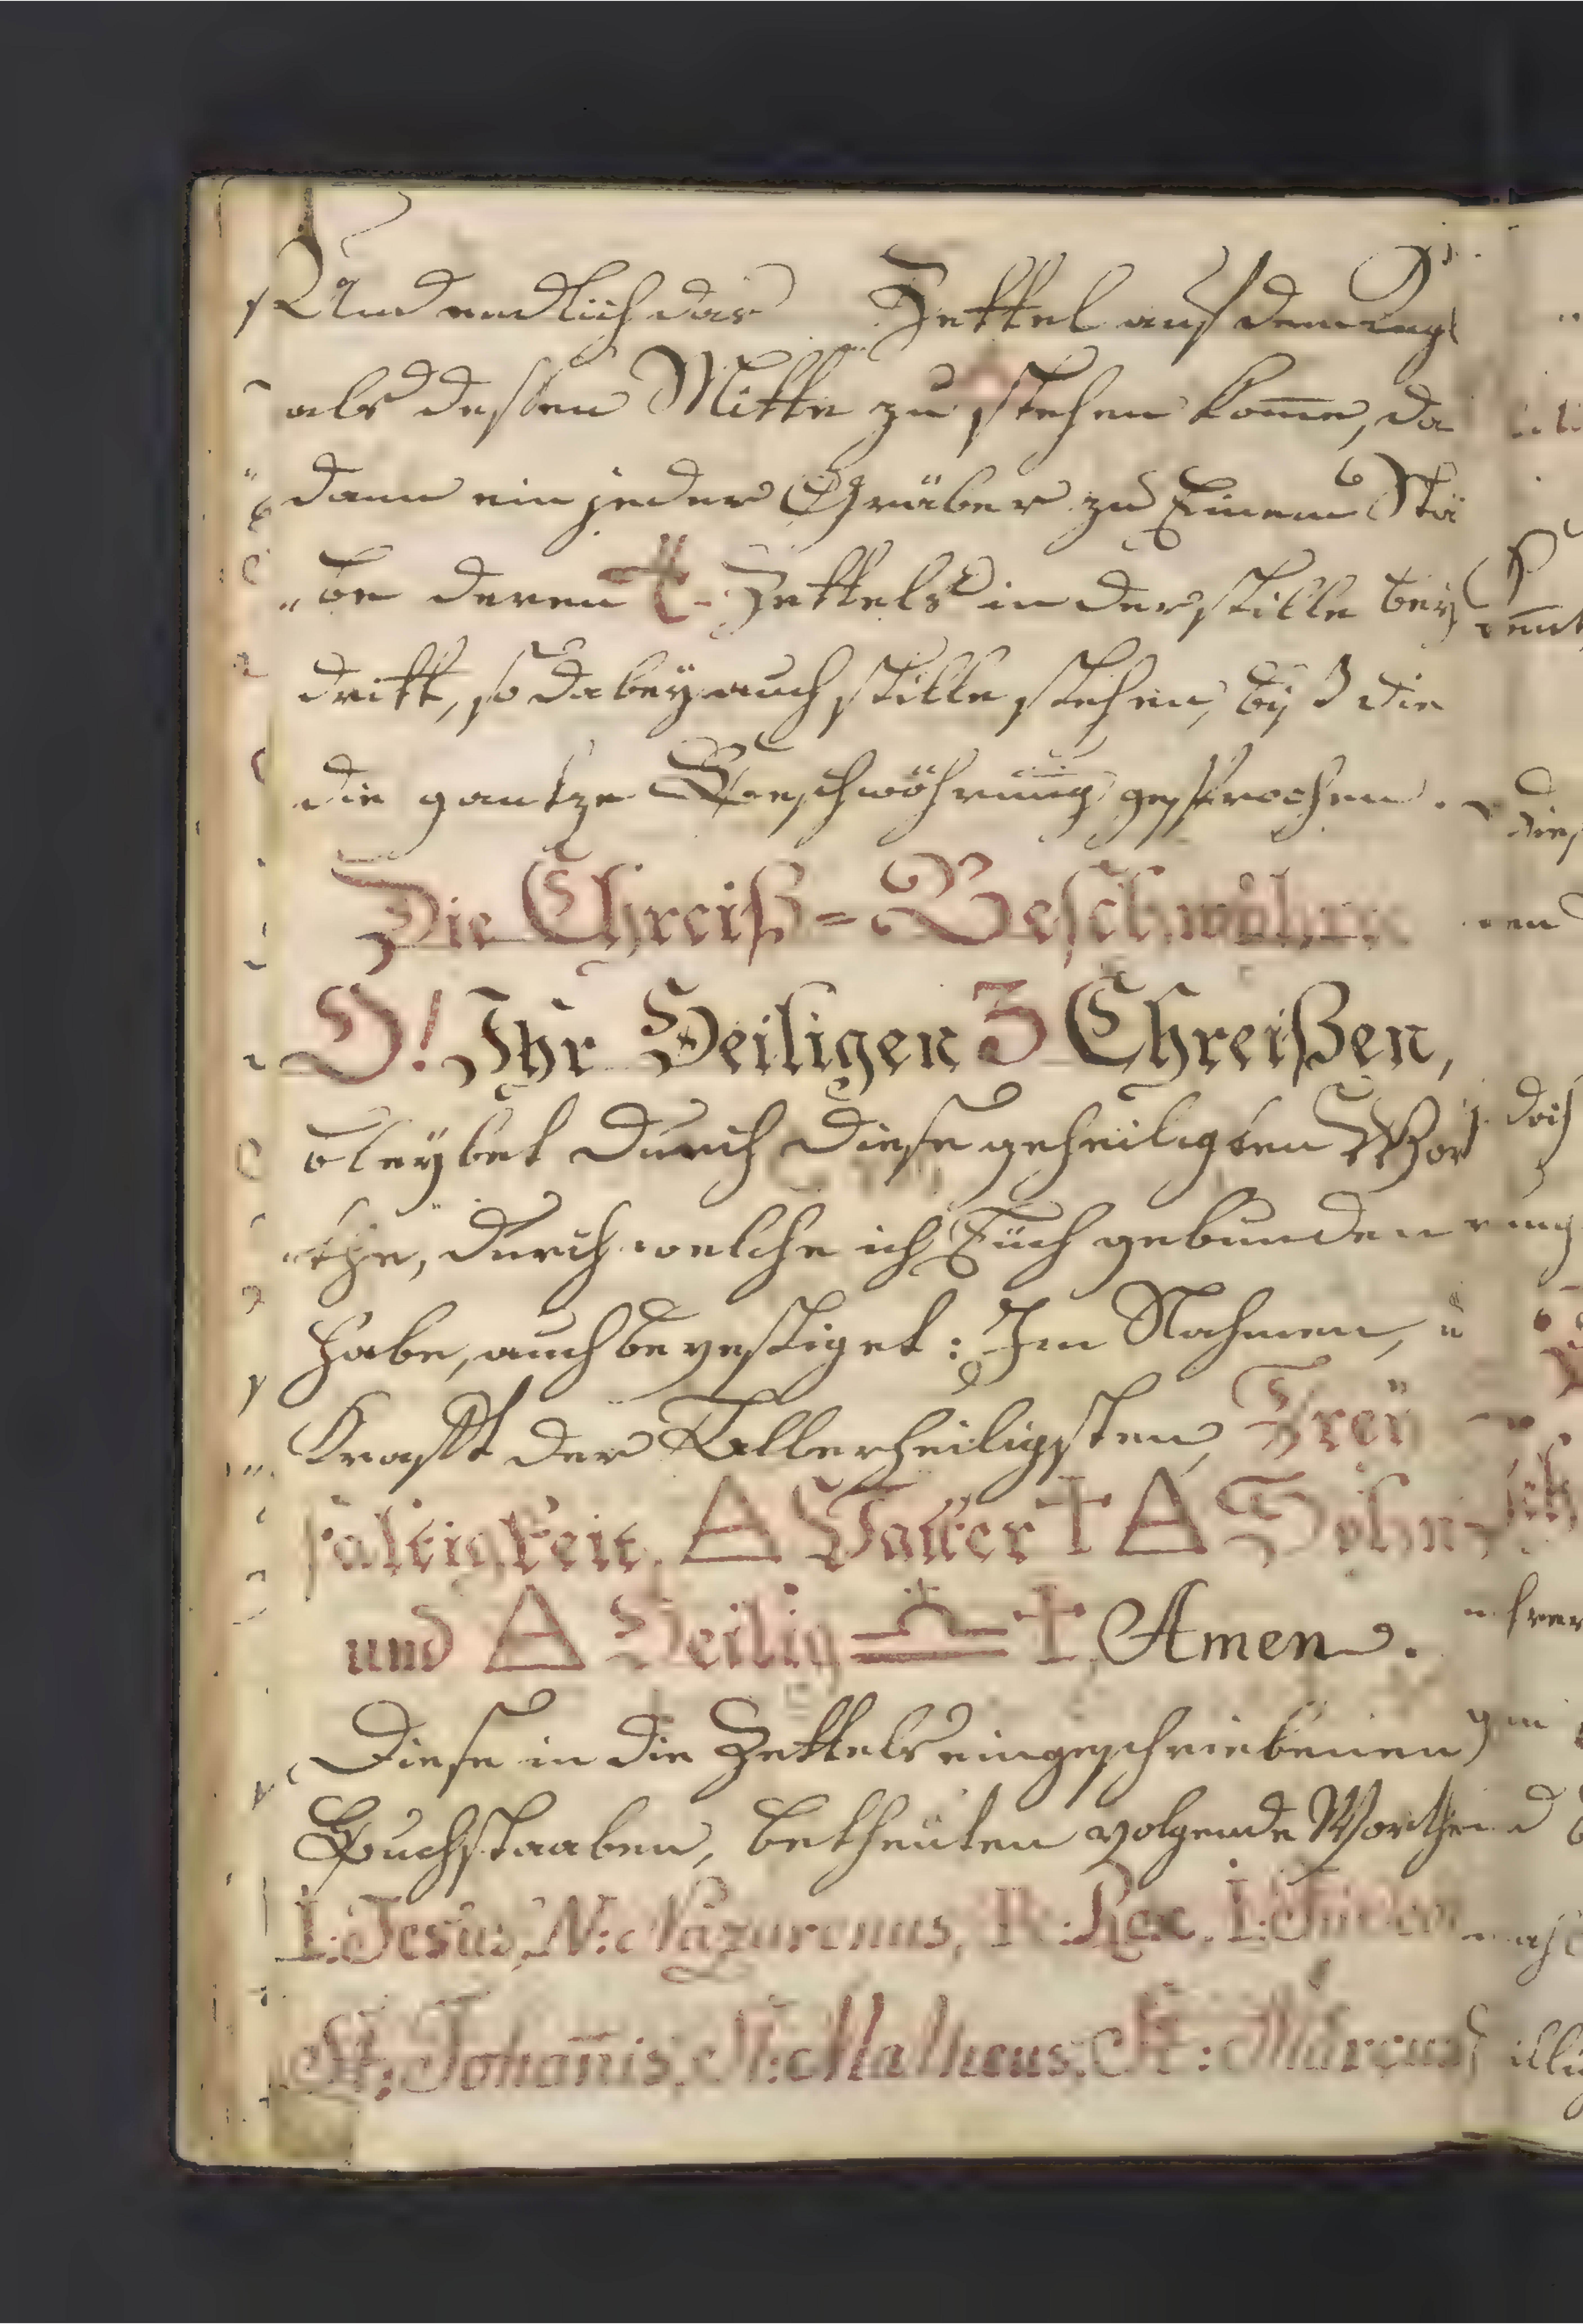 Und endlich das Zettel auf dem
als dessen Mitte zu stehen kom̄e, da
dann ein jeder Gräber zu Einem Stä
„be deren ✝ Zettels in der stille bey
dritt, so dabey auch stille stehen, byß die
die gantze Beschwöhrung gesprochen.
Die Chreiß=Beschwöhre
O! Ihr Heiligen 3 Chreißen,
bleybet durch diese geheiligten Wor
„the, durch welche ich Euch gebunden
habe, auch bevestiget: Im Nahmen, u
Krafft der Allerheiligsten, Drey
faltigkeit, △ Vatter ✝ △ Sohn
und △ Heilig ✝ Amen.
Diese in die Zettels eingeschriebenen
Buchstaaben, betheüten volgende Worthe
I: Jesus, N: Nazarenus, R: Rex, I:
St: Johan̄is, St: Matheus, St: Marcus